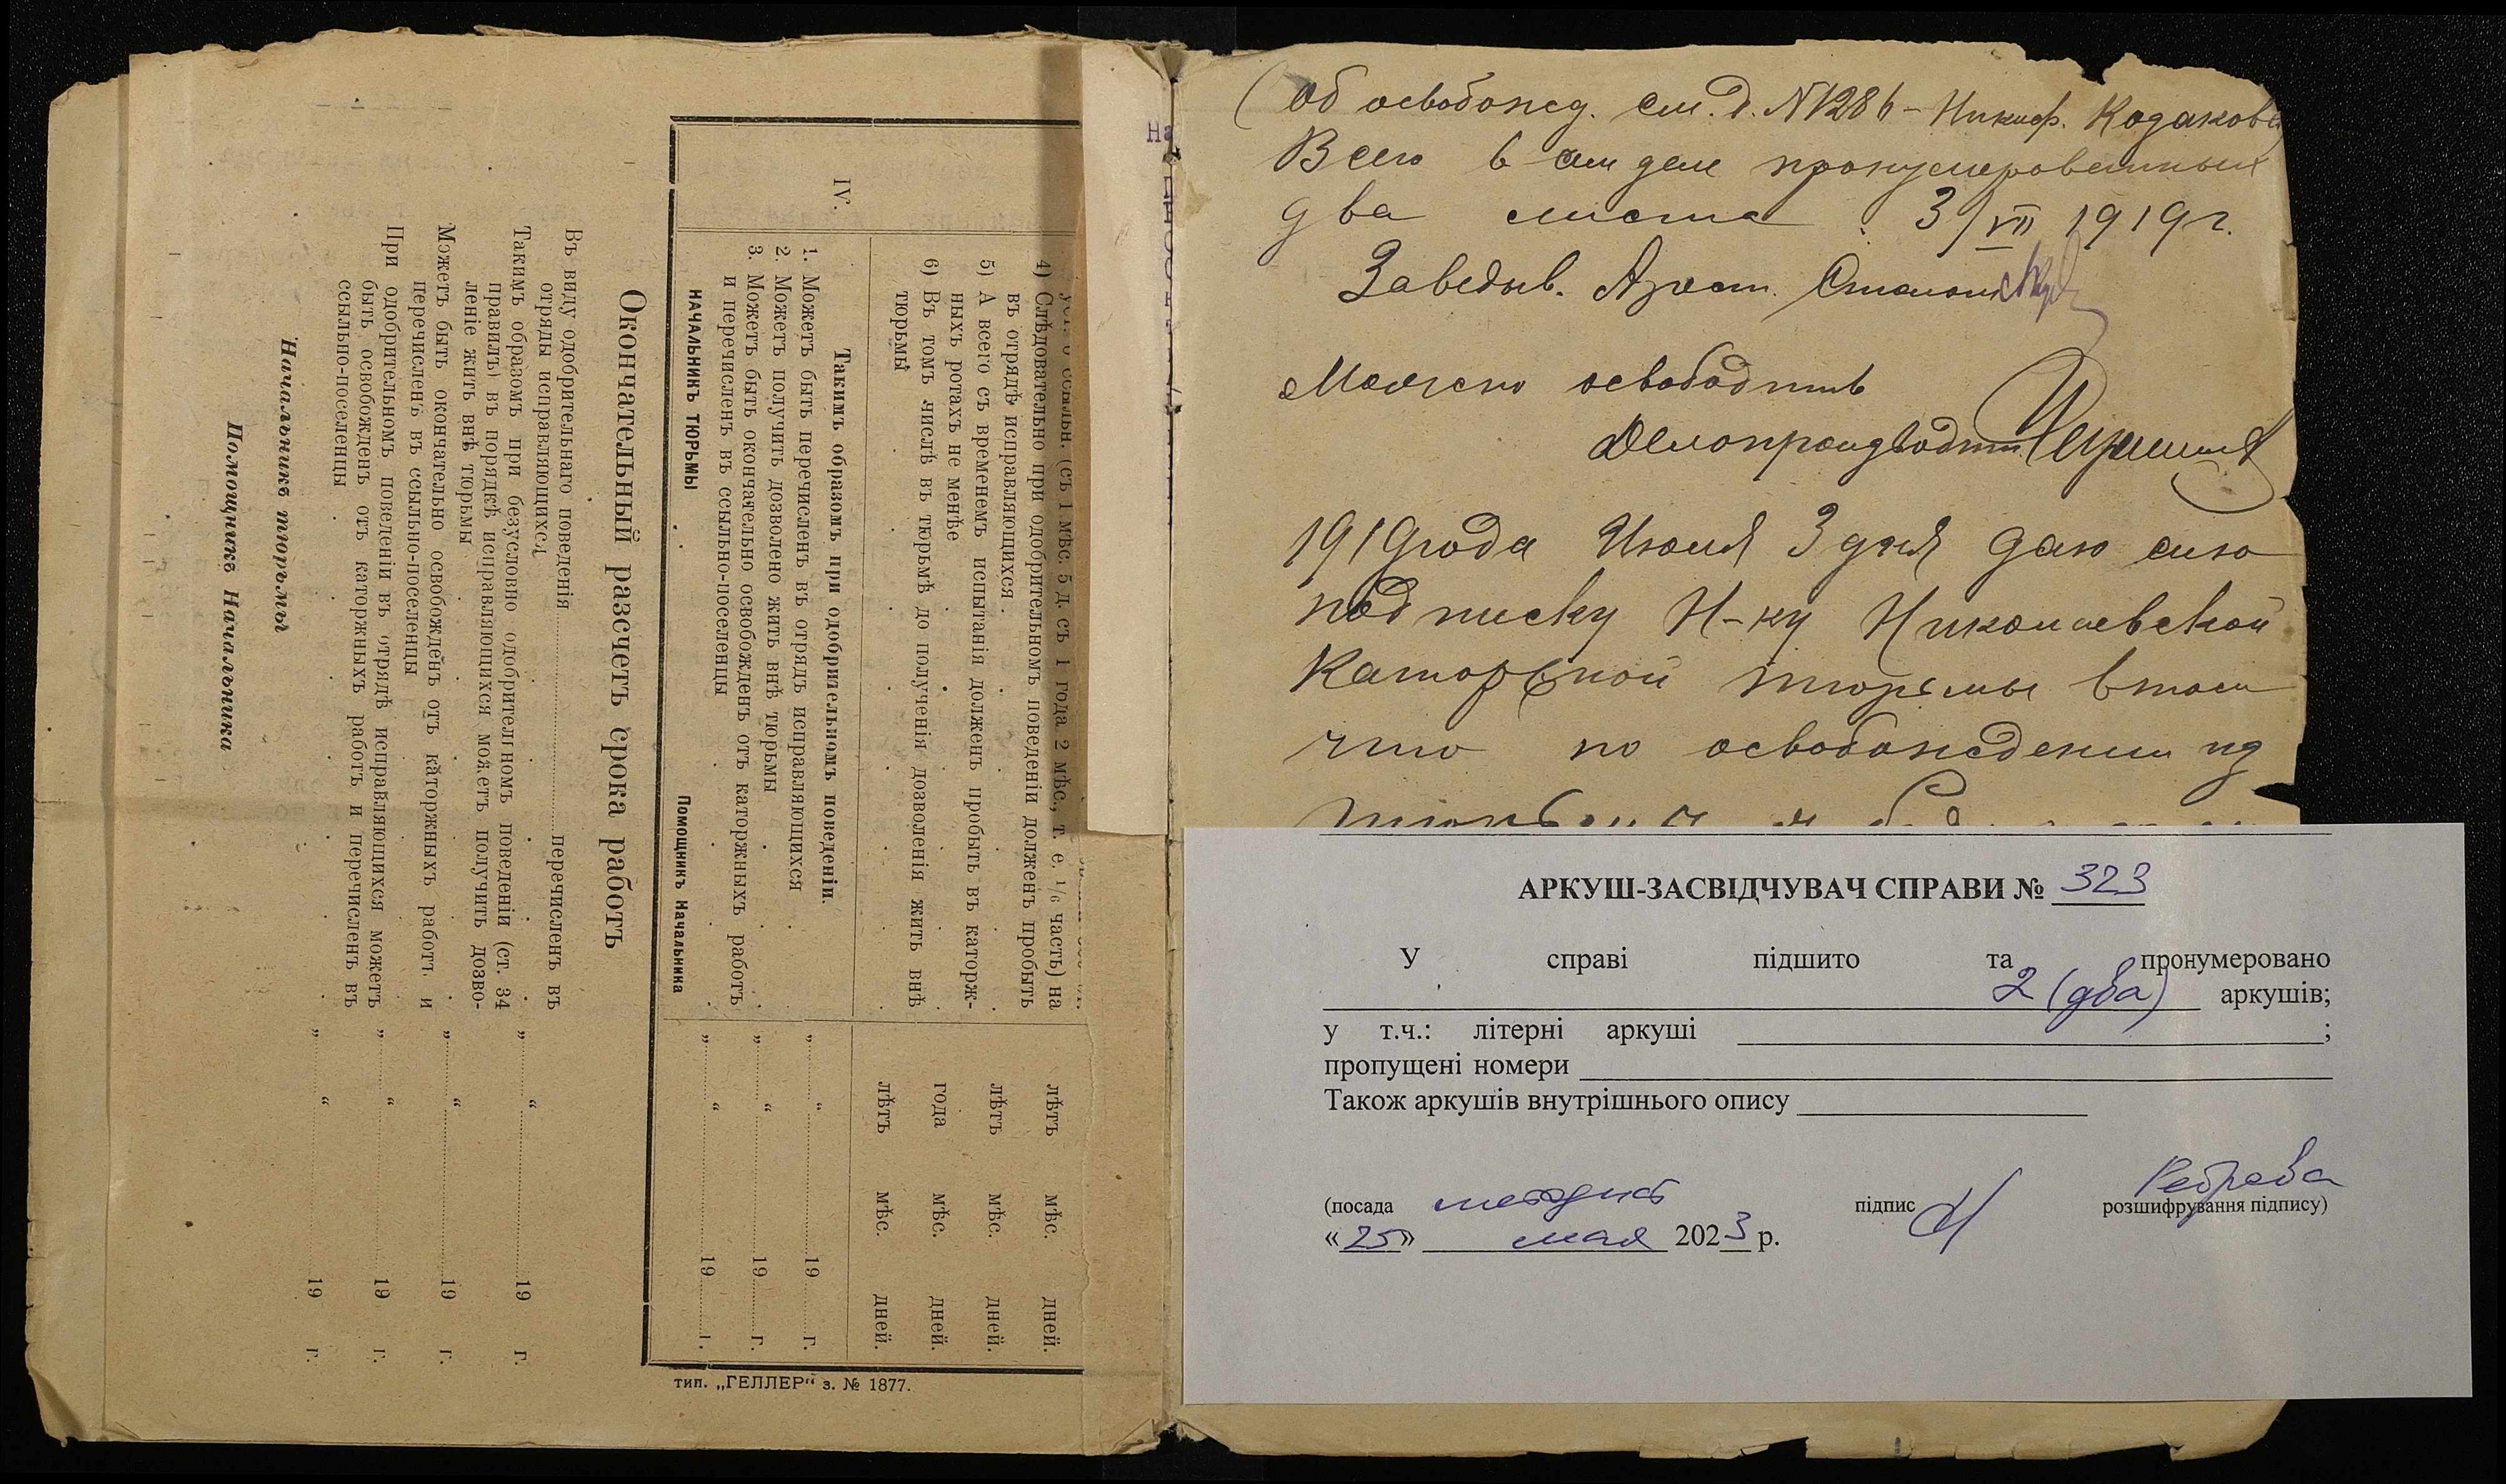 4) Слѣдовательно при одобрительномъ поведеніи долженъ пробыть
въ отрядѣ исправляющихся
лѣтъ мѣс. дней.
5) А всего съ временемъ испытанія долженъ пробыть въ каторж-
ныхъ ротахъ не менѣе
лѣтъ мѣс. дней.
6) Въ томъ числѣ въ тюрьмѣ до полученія дозволенія жить внѣ
года мѣс. дней.
тюрьмы
лѣтъ мѣс. дней.
IV.
Такимъ образомъ при одобрительномъ поведеніи.
1. Можетъ быть перечисленъ въ отрядъ исправляющихся „ “ 19 г.
2. Можетъ получить дозволено жить внѣ тюрьмы
3. Можетъ быть окончательно освобожденъ отъ каторжныхъ работъ „ “ 19 г.
и перечисленъ въ ссыльно-поселенцы „ “ 19 г.
НАЧАЛЬНИКЪ ТЮРЬМЫ Помощникъ Начальника
тип. „ГЕЛЛЕР“ з. № 1877.
Окончательный разсчетъ срока работъ
Въ виду одобрительнаго поведенія перечисленъ въ
отряды исправляющихся „ “ 19 г.
Такимъ образомъ при безусловно одобрительномъ поведеніи (ст. 34
правилъ) въ порядкѣ исправляющихся можетъ получить дозво-
леніе жить внѣ тюрьмы „ “ 19 г.
Можетъ быть окончательно освобожденъ отъ каторжныхъ работъ и
перечисленъ въ ссыльно-поселенцы „ “ 19 г.
При одобрительномъ поведеніи въ отрядѣ исправляющихся можетъ
быть освобожденъ отъ каторжныхъ работъ и перечисленъ въ
ссыльно-поселенцы „ “ 19 г.
Начальникъ тюрьмы
Помощникъ Начальника
(Об освобожд. см. д. N 1286 - Никиф. Кодакова)
Всего в сем деле пронумерованных
два листа 3/VII 1919 г.
Заведыв. Арест.
Можно освободить
Делопроизводит.
1919 года Июля 3 дня даю сию
подписку Н-ку Николаевской
Каторжной тюрьмы в том
что по освобождении из
АРКУШ-ЗАСВІДЧУВАЧ СПРАВИ № 323
У справі підшито та пронумеровано
2 (два) аркушів;
у т.ч.: літерні аркуші ;
пропущені номери
Також аркушів внутрішнього опису
(посада методист підпис Реброва розшифрування підпису)
«25» мая 2023 р.